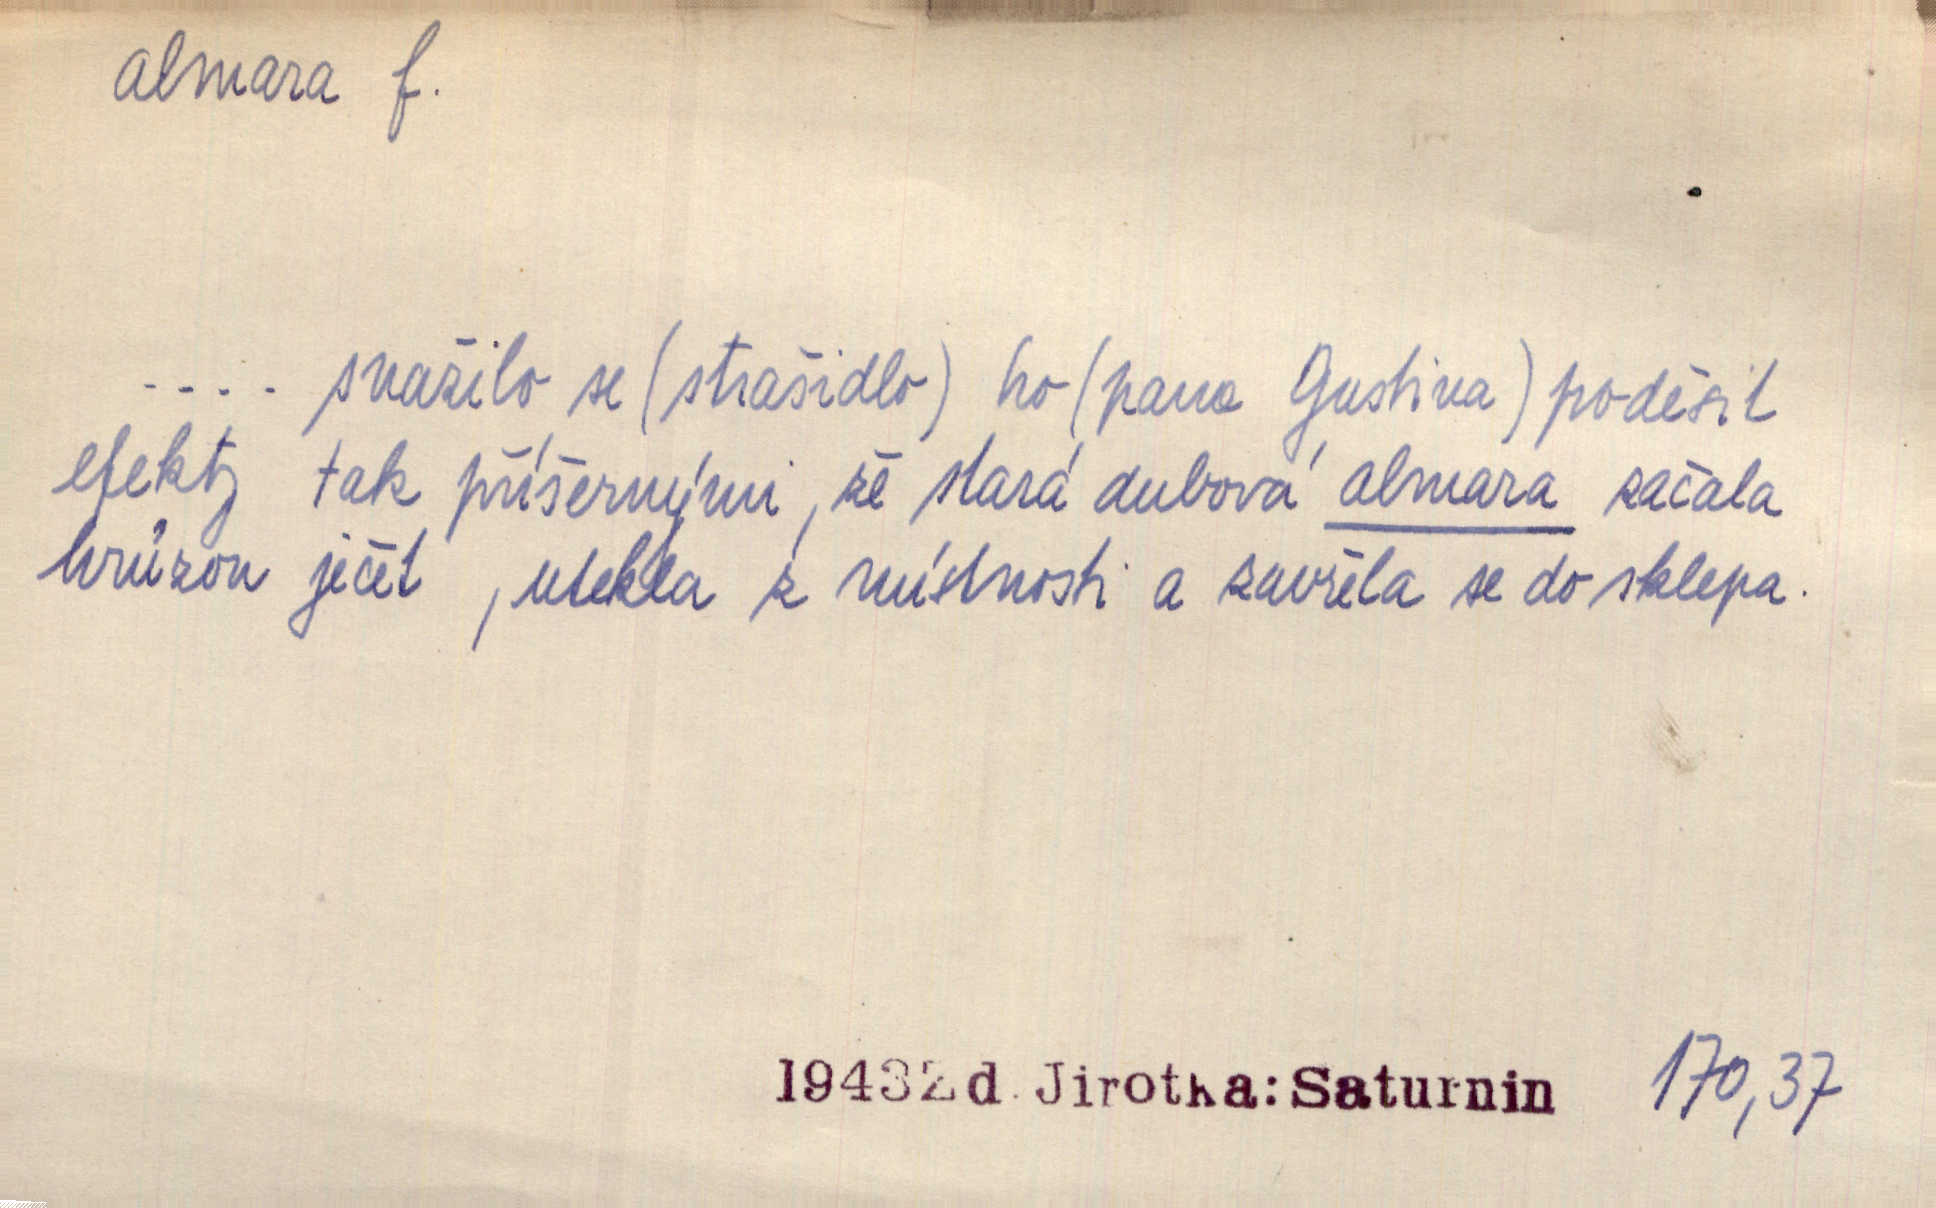 almara f.
.... snažilo se (strašidlo) ho (pana Gustina) poděsit
efekty tak příšernými, že stará dubová almara začala
hrůzou ječet, utekla z místnosti a zavřela se do sklepa.
1943Zd. Jirotka: Saturnin 170,37